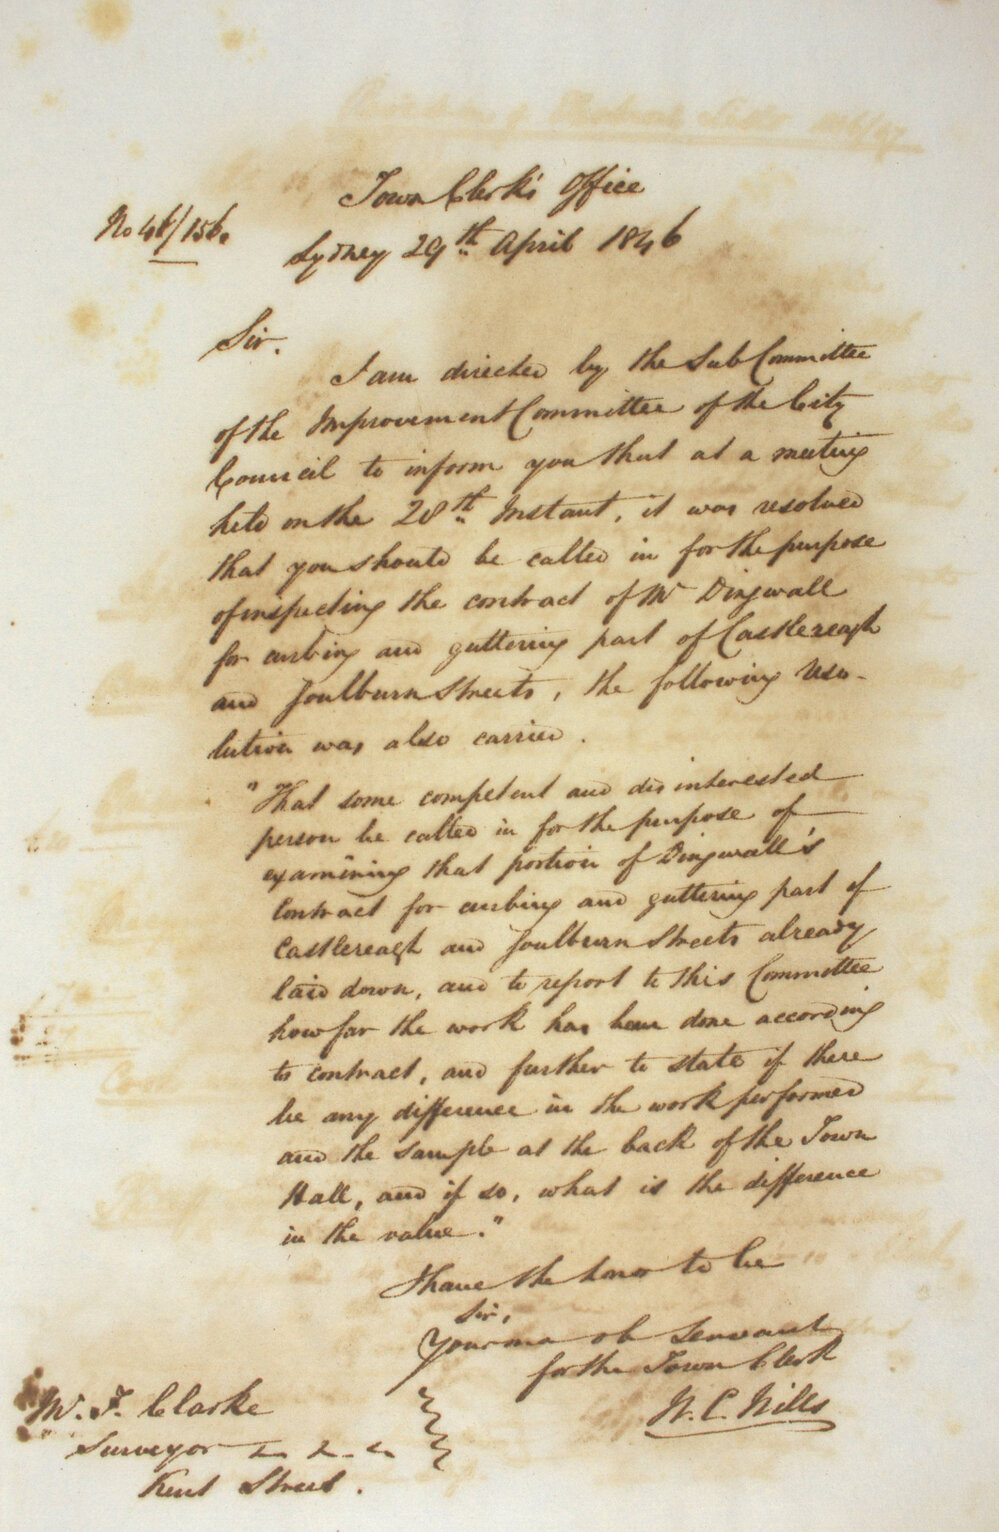 Town Clerk's Office
No 46/156.
Sydney 29th April 1846
Sir.
I am directed by the Sub Committee
of the Improvement Committee of the City
Council to inform you that at a meeting
held on the 28th Instant, it was resolved
that you should be called in for the purpose
of inspecting the contract of Mr Dingwall
for curbing and guttering part of Castlereagh
and Goulburn Streets, the following reso-
lution was also carried.
"That some competent and disinterested
person be called in for the purpose of
examining that portion of Dingwall's
Contract for curbing and guttering part of
Castlereagh and Goulburn Streets already
laid down, and to report to this Committee
how far the work has been done according
to contract, and further to state if there
be any difference in the work performed
and the sample at the back of the Town
Hall, and if so, what is the difference
in the value."
I have the honor to be
Sir,
Your mo ob Servant
for the Town Clerk
Mr. F. Clarke
Surveyor
Kent Street.